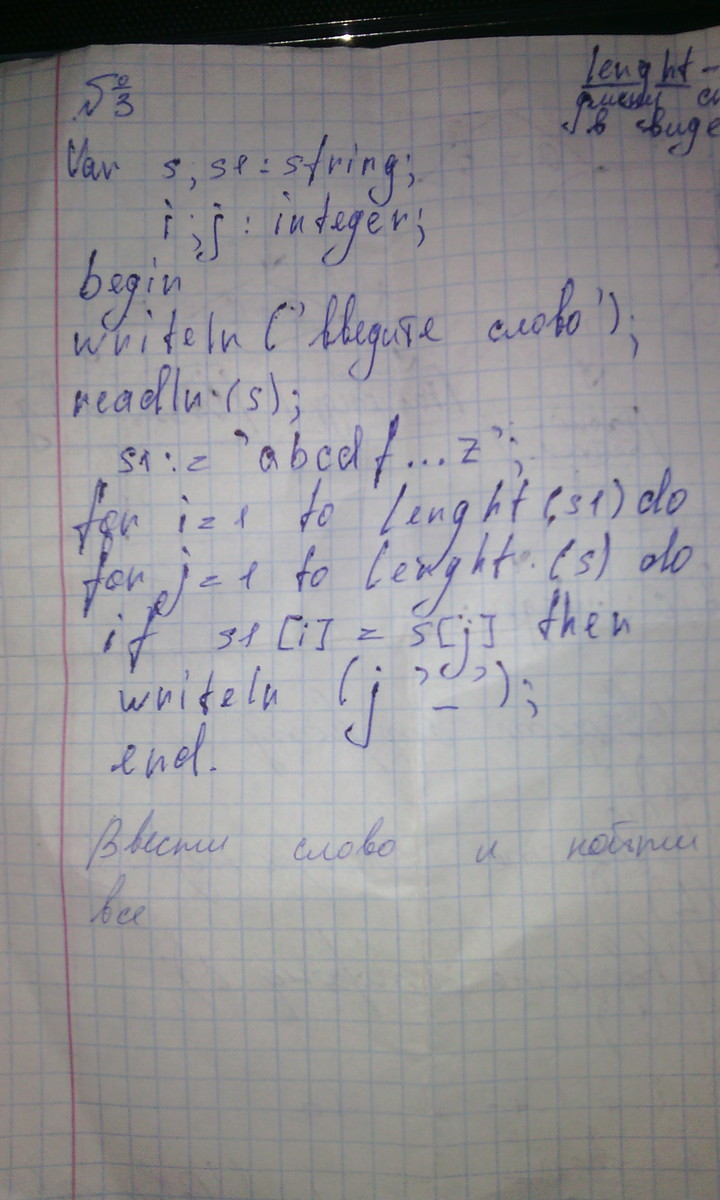 №3
lenght -
длину
в виде
Var s; s1: string;
i; j: integer;
begin
writeln ('введите слово');
readln (s);
s1:= 'abcdf...z';
for i=1 to lenght (s1) do
for j=1 to lenght (s) do
if s1 [i] = s[j] then
writeln (j '_');
end.
Ввести слово и найти
все